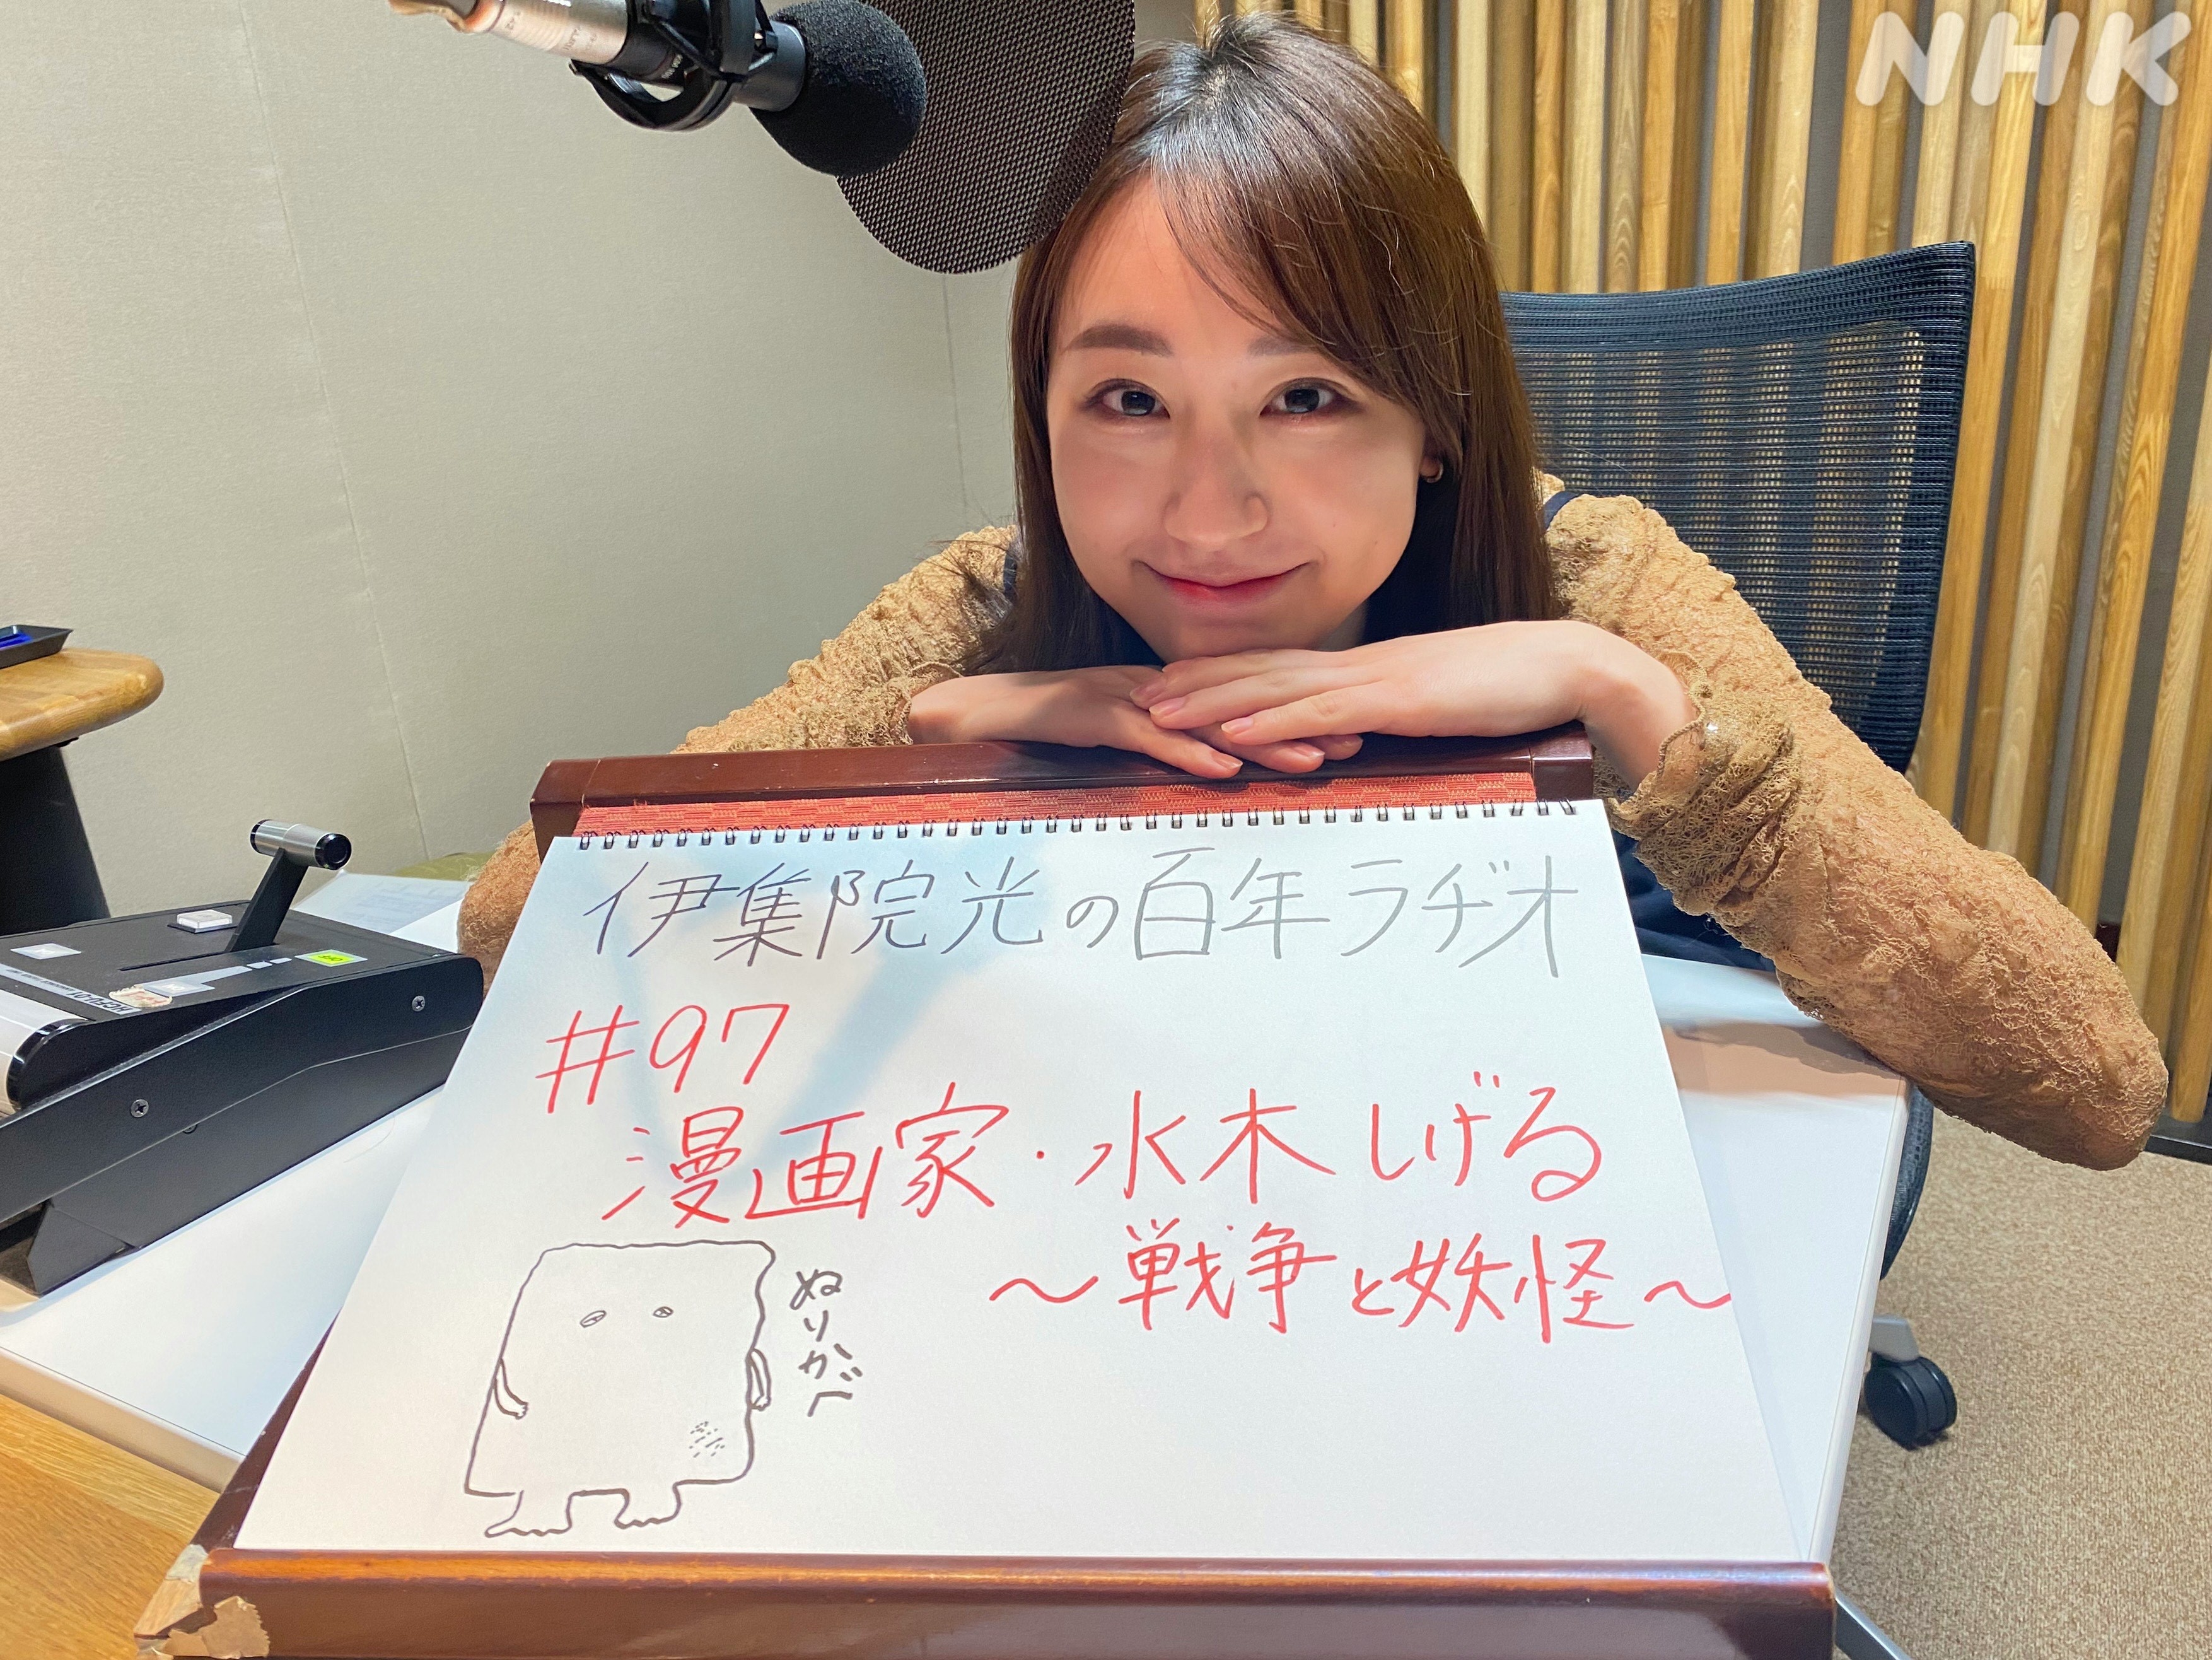 NHK
伊集院光の百年ラヂオ
#97
漫画家・水木しげる
～戦争と妖怪～
ぬりかべ